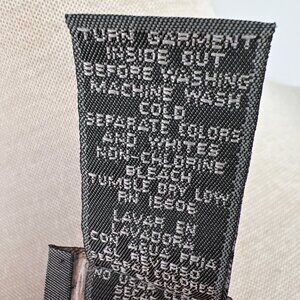 TURN GARMENT
INSIDE OUT
BEFORE WASHING
MACHINE WASH
COLD
SEPARATE COLORS
AND WHITES
NON-CHLORINE
BLEACH
TUMBLE DRY LOW
RN 15606
LAVAR EN
LAVADORA
CON AGUA FRIA
AL REVERSO
SEPARAR COLORES
NO USAR